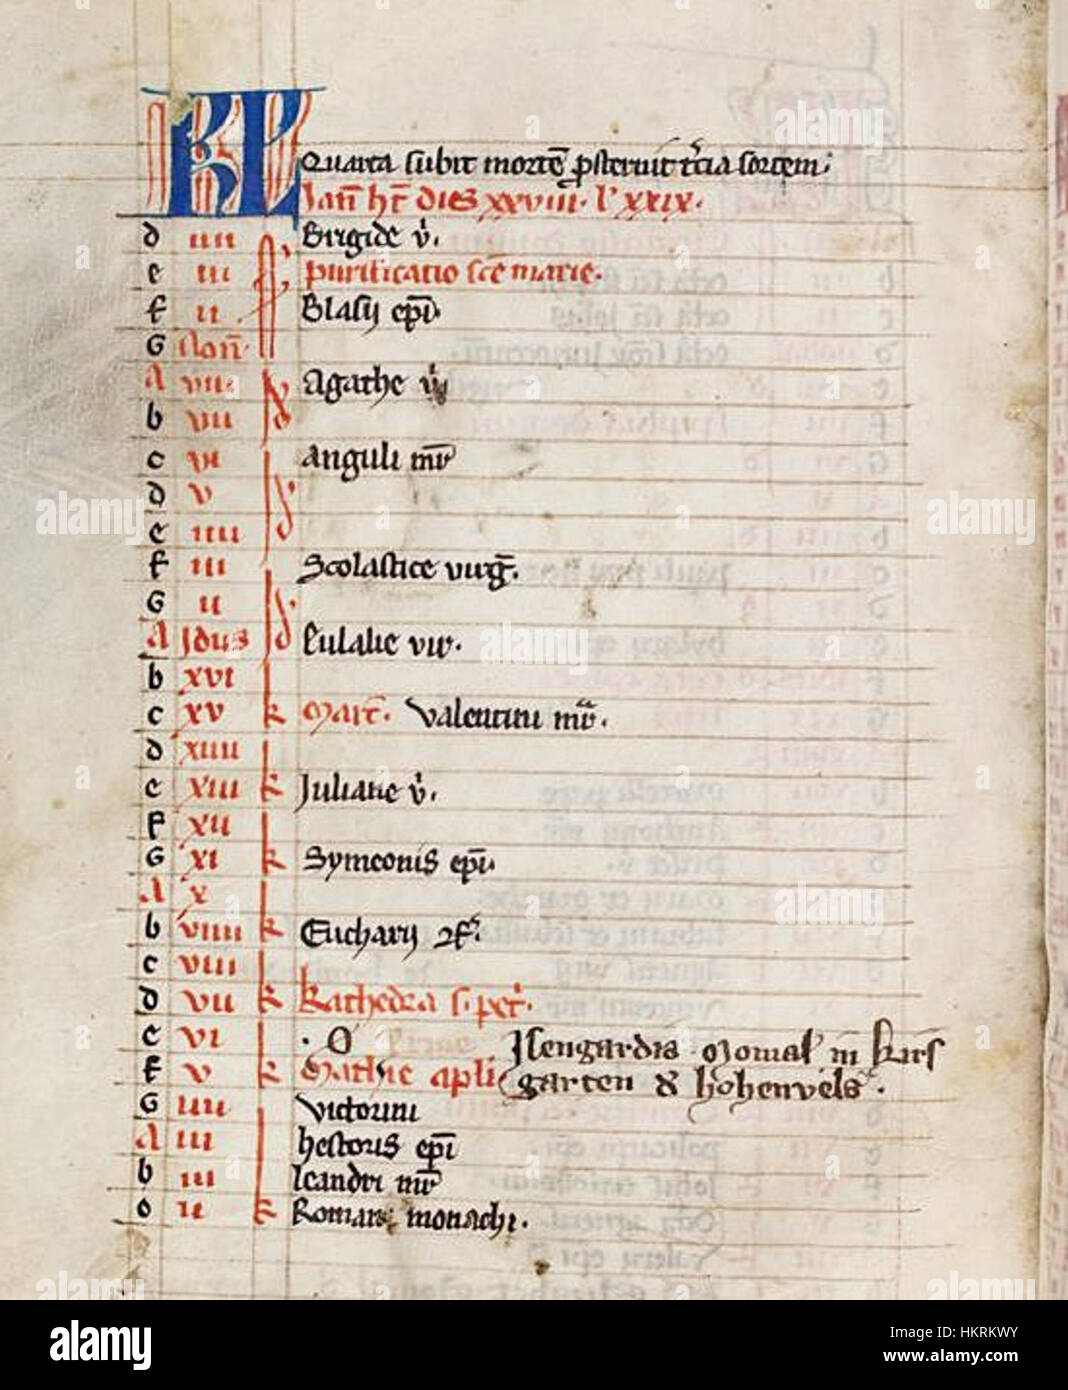 KL Quarta subit mortē ꝓsternit t̄cia sortem;
Jan̄ ht̄ dies xxviii. l' xxix.
d iiii Brigide v̄.
e iii purificatio sc̄e marie.
f ii Blasij ep̄i.
G Non̄.
A viii Agathe v̄
b vii
c vi Anguli mr̄
d v
e iiii
f iii Scolastice virḡ.
G ii
A Jdus Eulalie vir.
b xvi
c xv k Mart̄. Valentini mr̄.
d xiiii
e xiii k Juliane v̄.
f xii
G xi k Symeonis ep̄i.
A x
b viiii k Eucharij
c viii
d vii k Kathedra s. pet̄.
e vi . O Jsengardis Monial' in
f v k Mathie apli garten & hohenvels.
G iiii Victorini
A iii hestoris ep̄i
b iii leandri mr̄
c ii k Romani monachi.
alamy
alamy
alamy
Image ID: HKRKWY
www.alamy.com